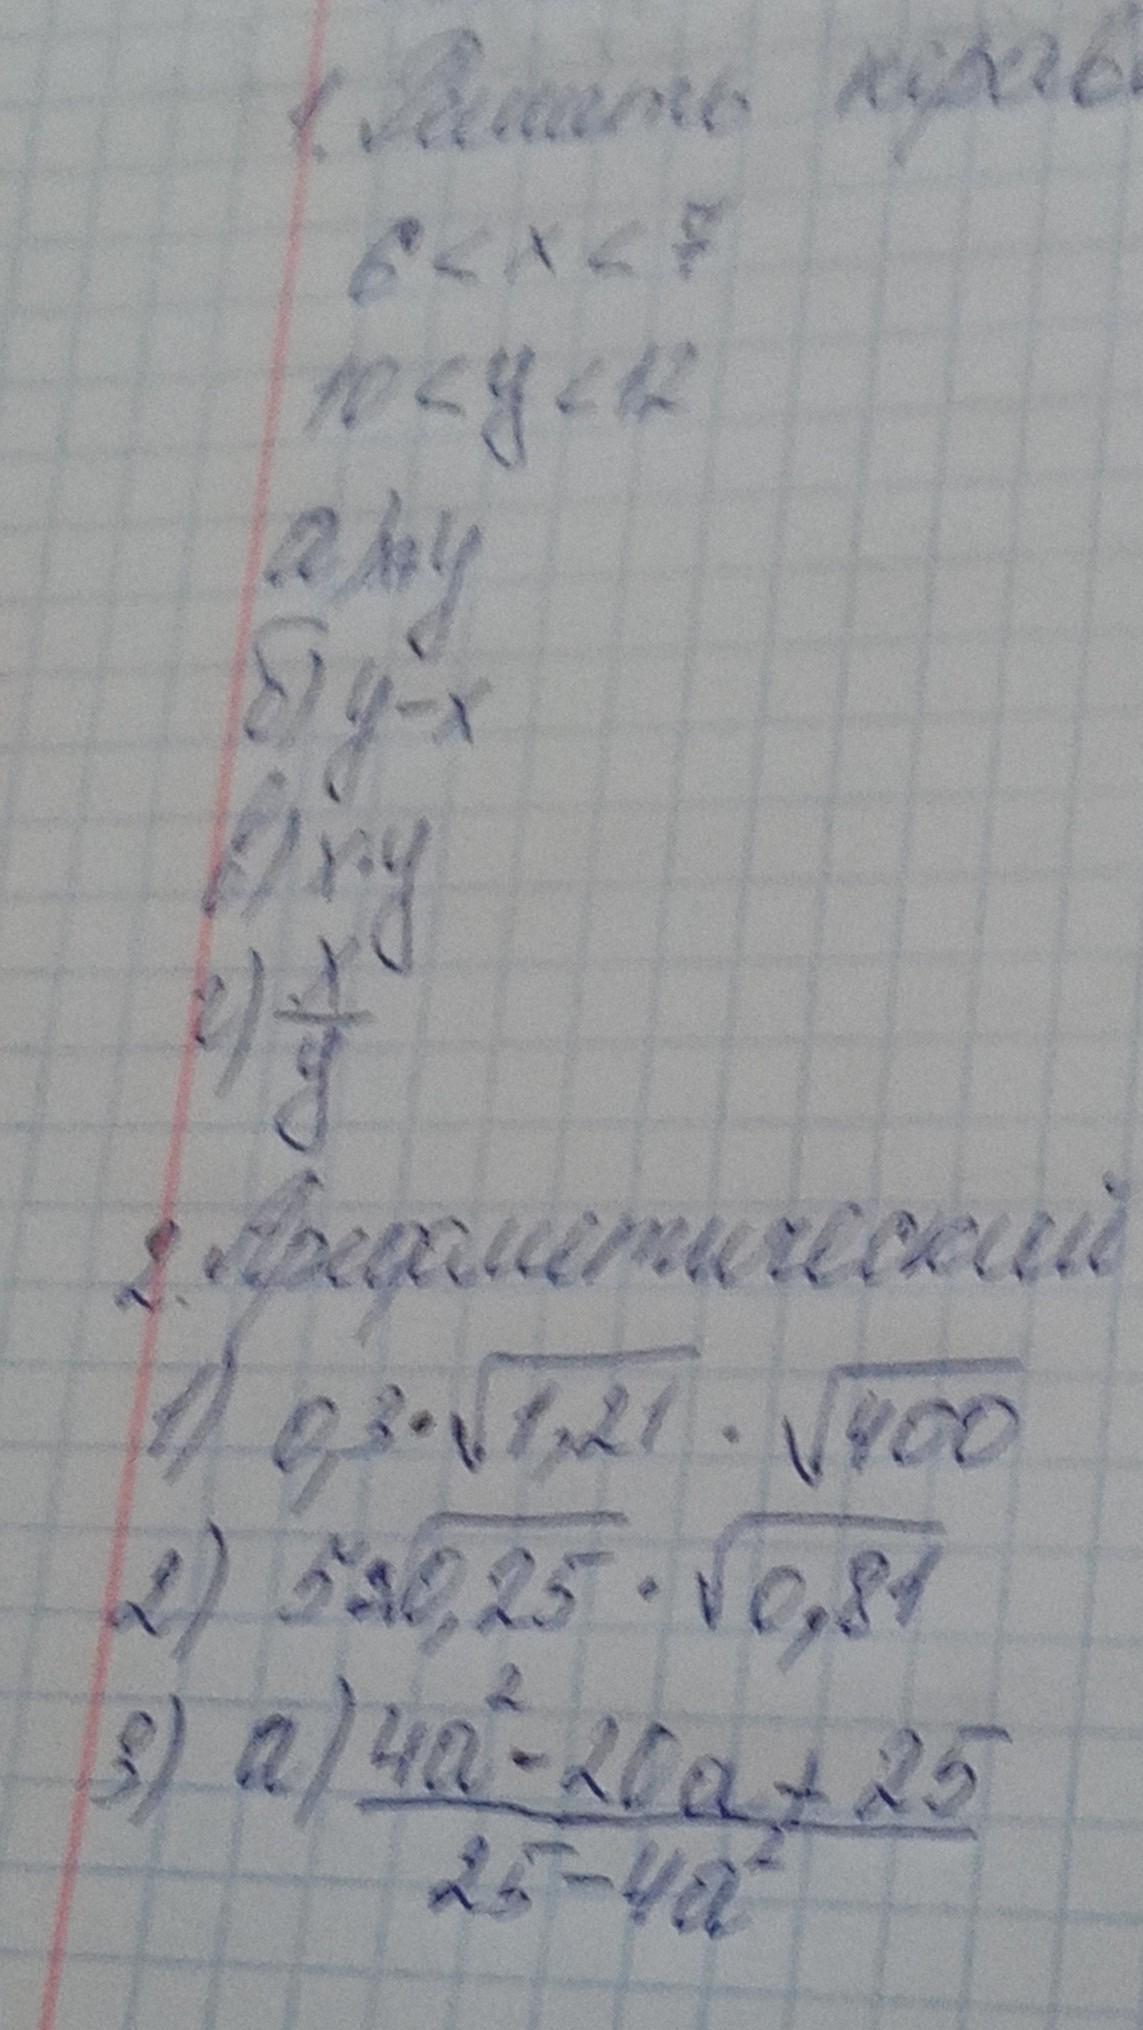 1. Решить нерав
6 < x < 7
10 < y < 12
а) x+y
б) y-x
в) x·y
г) x/y
2. Арифметический
1) 0,3·√1,21 · √400
2) 5√0,25 · √0,81
3) а) (4a²-20a+25)/(25-4a²)